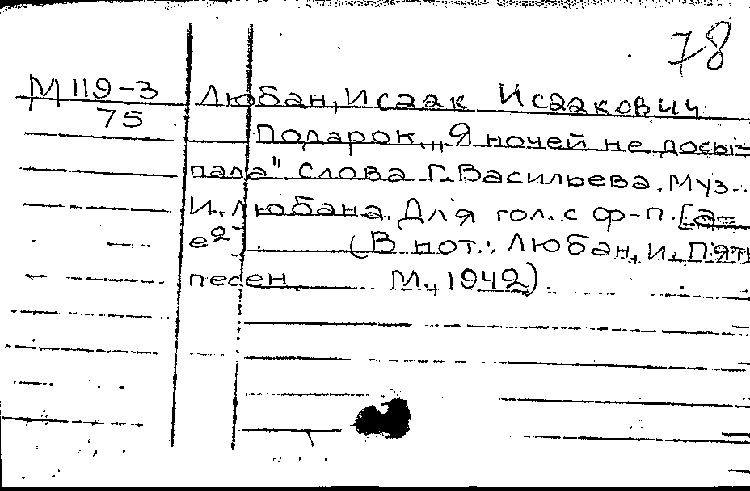 78
М 119-3 Любан, Исаак Исаакович
75
Подарок. „Я ночей не досы-
пала" Слова Г. Васильева. Муз.
И. Любана. Для гол. с ф-п. [a-
e2] (В нот.: Любан, И. Пять
песен М., 1942).